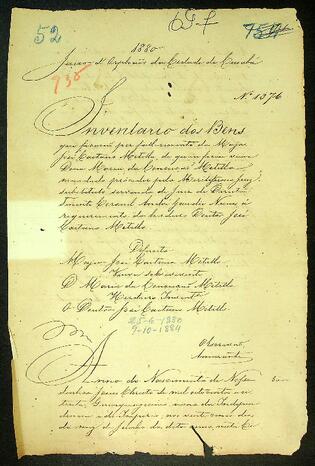 52
1880
Juizo d'Orphãos da Cidade de Cuiabá
738
Nº 1376
Inventario dos Bens
que ficarão por fallecimento do Major
José Caetano Metello, de quem ficou viuva
Dona Maria da Conceição Metello
mandado proceder pelo
substituto servindo de Juiz de Direito
Tenente Coronel André Gaudie Nunes, á
requerimento do herdeiro Doutor José
Caetano Metello
Defunto
Major José Caetano Metello
Viuva sobrevivente
D. Maria da Conceição Metello
Herdeiro
O Doutor José Caetano Metello
25-6-1880
9-10-1884
O Escrivão
Anno do Nascimento de Nosso
Senhor Jesus Christo de mil oito centos e oi
tenta, quinquagesimo nono da Indepen
dencia e do Imperio, aos vinte cinco dias
do mez de Junho do dito anno, nesta Ci